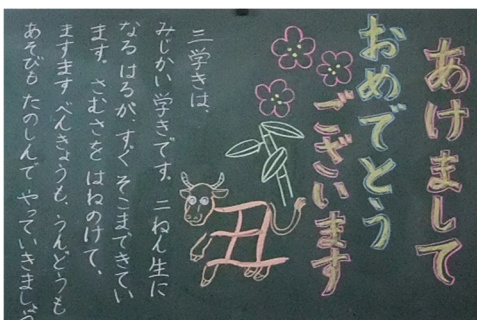 あけまして
おめでとう
ございます
丑
三学きは、
みじかい学きです。二ねん生に
なるはるが、すぐそこまできてい
ます。さむさを はねのけて、
ますます べんきょうも、うんどうも
あそびも たのしんで やっていきましょう